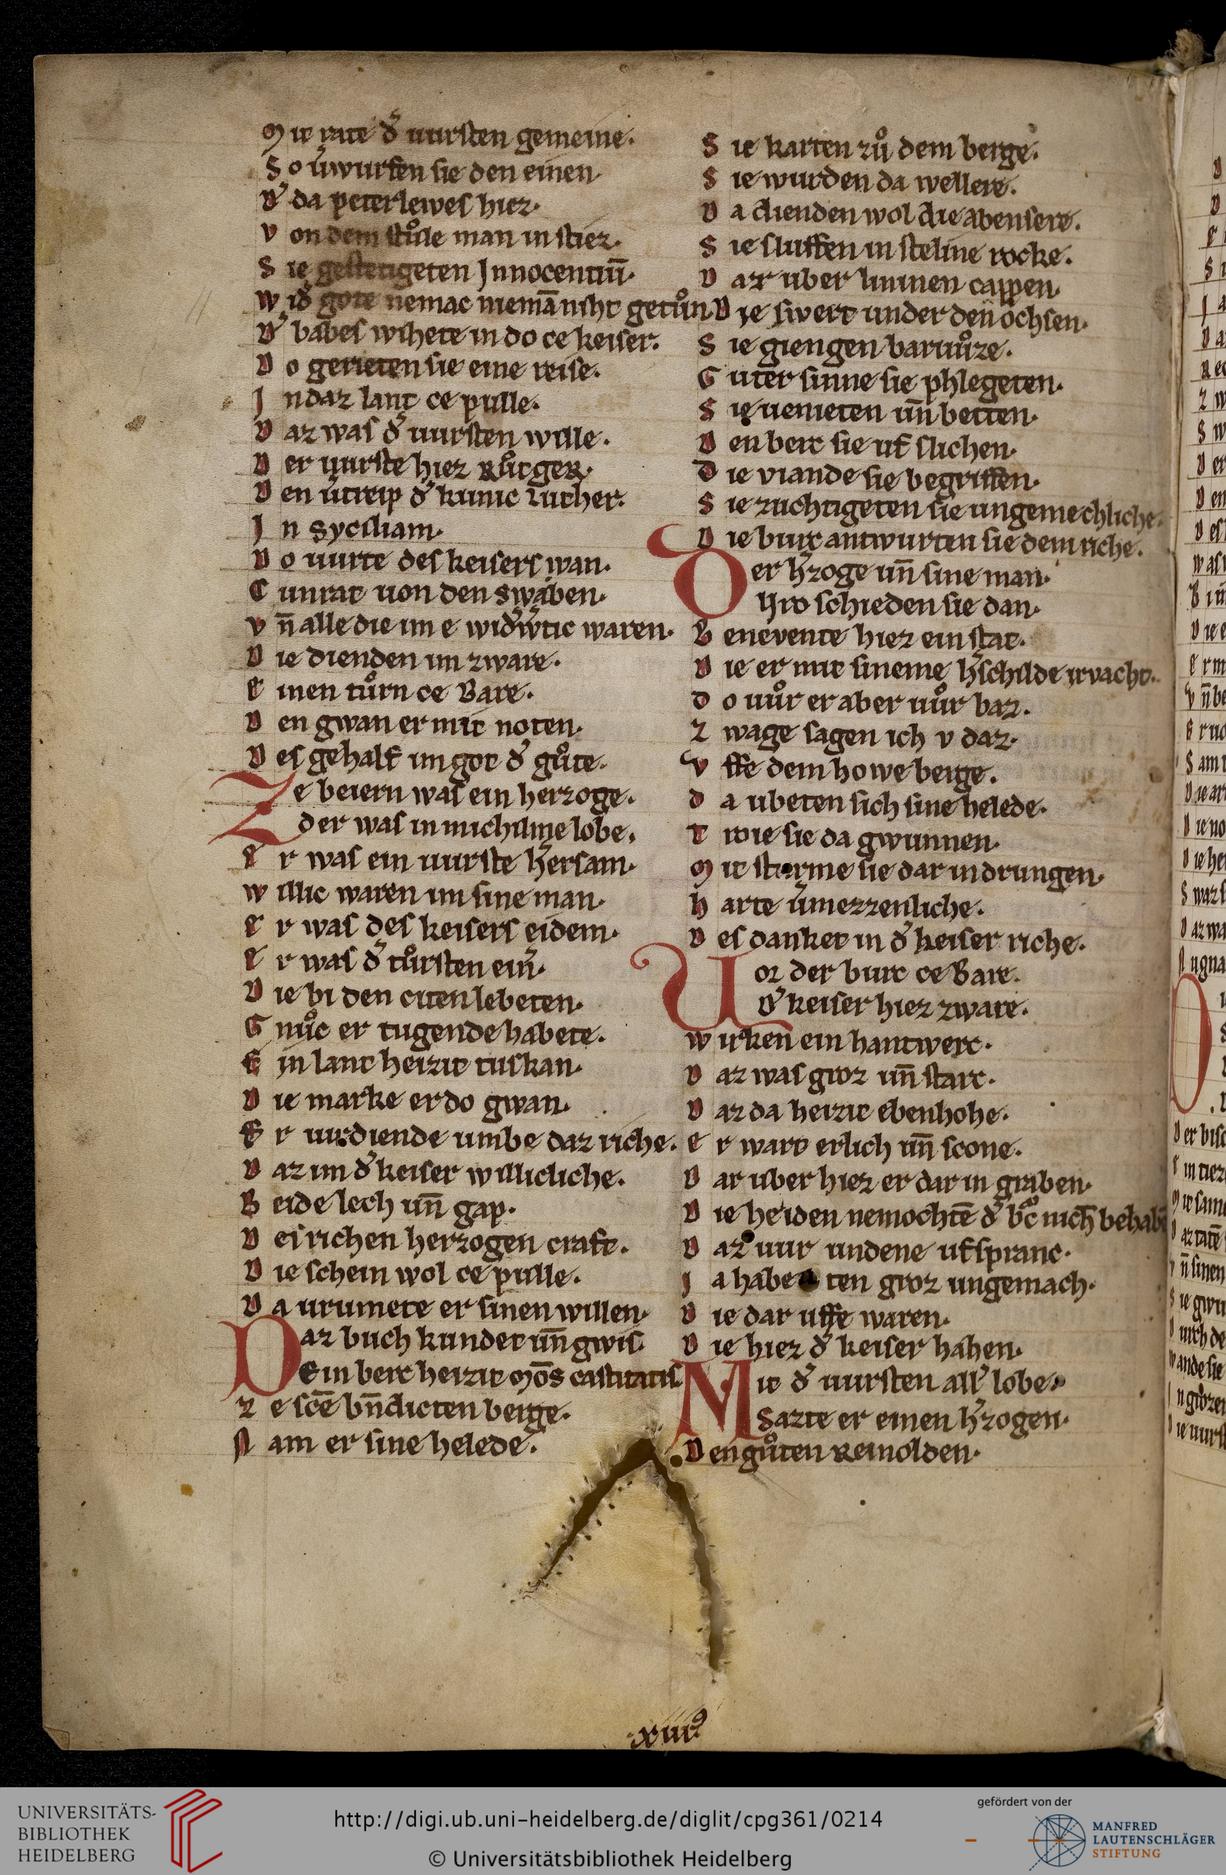 Mit rate d̾ uursten gemeine.
So u̾wurfen sie den einen.
D̾ da peterlewes hiez.
Von dem stůle man in stiez.
Sie gestetigeten Innocentiū.
Wid̾ gote nemac niemā niht getůn.
D̾ babes wihete in do ce keiser.
Do gerieten sie eine reise.
In daz lant ce pulle.
Daz was d̾ uursten wille.
Der uurste hiez Růtger.
Den u̾treip d̾ kunic Luther.
In Syciliam.
Do uurte des keisers wan.
Cunrat uon den Swaben.
Vn̄ alle die im e wid̾w̾tic waren.
Die dienden im zware.
Einen tůrn ce Bare.
Den gwan er mit noten.
Des gehalf im got d̾ gůte.
Ze beiern was ein herzoge.
der was in michilme lobe.
Er was ein uurste h̾ersam.
Willic waren im sine man.
Er was des keisers eidem.
Er was d̾ tůrsten ein̾.
Die bi den citen lebeten.
Gnůc er tugende habete.
Ein lant heizit tuskan.
Die marke er do gwan.
Er uirdiende umbe daz riche.
Daz im d̾ keiser willicliche.
Beide lech un̄ gap.
Des richen herzogen craft.
Die schein wol ce pulle.
Da urumete er sinen willen.
Daz buch kundet un̄ gwis.
Ein berc heizit mōs castitatis.
Ze sc̄e bn̄dicten berge.
Nam er sine helede.
Sie karten zů dem berge.
Sie wurden da wellere.
Da dienden wol die abensere.
Sie sluffen in steline rocke.
Dar uber linnen cappen.
Die swert under den ochsen.
Sie giengen baruůze.
Guter sinne sie phlegeten.
Sie uenieten un̄ betten.
Den berc sie uf slichen.
Die viande sie begriffen.
Sie zuchtigeten sie ungemechliche.
Die burc antwurten sie dem riche.
Der h̾zoge un̄ sine man.
Vro schieden sie dan.
Benevente hiez ein stat.
Die er mit sineme h̾schilde irvacht.
do uůr er aber uůr baz.
Zwage sagen ich v daz.
Vffe dem howe berge.
da ubeten sich sine helede.
Twie sie da gwunnen.
Mit sturme sie dar in drungen.
harte u̾mezzenliche.
Des danket in d̾ keiser riche.
Uor der burc ce Bare.
D̾ keiser hiez zware.
Wirken ein hantwerc.
Daz was groz un̄ starc.
Daz da heizit ebenhohe.
er wart erlich un̄ scone.
Dar uber hiez er dar in graben.
Die heiden nemochtē d̾ bc̊ nich̄ behab
Daz uur undene uf spranc.
Ja habeten groz ungemach.
Die dar uffe waren.
Die hiez d̾ keiser hahen.
Mit d̾ uursten all̾ lobe.
Sazte er einen h̾zogen.
Den gůten Reinolden.
xiiii9
UNIVERSITÄTS-
BIBLIOTHEK
HEIDELBERG
http://digi.ub.uni-heidelberg.de/diglit/cpg361/0214
© Universitätsbibliothek Heidelberg
gefördert von der
MANFRED
LAUTENSCHLÄGER
STIFTUNG